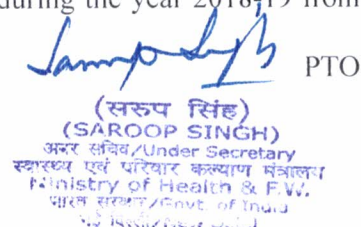 during the year 2018-19 from
PTO
(सरुप सिंह)
(SAROOP SINGH)
अवर सचिव/Under Secretary
स्वास्थ्य एवं परिवार कल्याण मंत्रालय
Ministry of Health & F.W.
भारत सरकार/Govt. of India